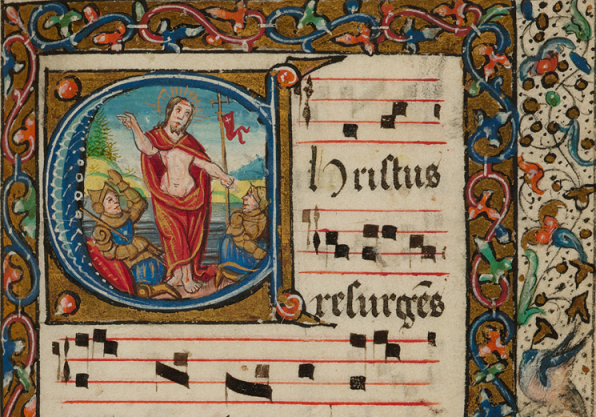 Christus
resurgēs